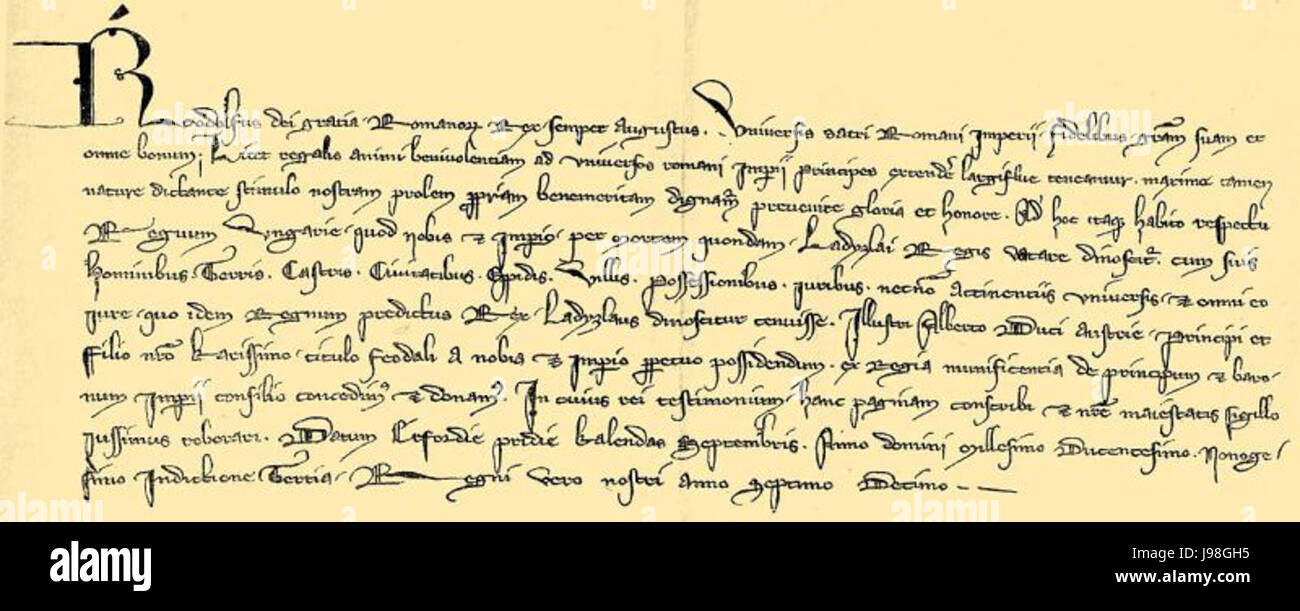 Rudolfus dei gratia Romanoꝝ Rex semper augustus. Universis sacri Romani Imperii fidelibus grām suam et
omne bonum. Licet regalis animi benivolentiam ad universos romani Imꝑii principes extendēr largiflue teneamur. maxime tamen
nature dictante stimulo nostram prolem ꝓpriam benemeritam dignam̄ prevenire gloria et honore. Ad hoc itaqꝫ habito respectu
Regnum Ungarie. quod nobis et Imꝑio. per mortem quondam. Ladyzlai Regis vacare dinoscit᷑. cum suis
hominibus. Terris. Castris. Civitatibus. Opidis. Villis. possessionibus. iuribus. necnō Attinentiis universis. et omni eo
iure. quo idem Regnum predictus Rex. Ladyzlaus dinoscitur tenuisse. Illustri Alberto Duci Austrie. Principi et
filio nr̄o karissimo. titulo feodali a nobis et Imꝑio ꝑpetuo possidendum. ex Regia munificentia de principum et baro-
num Imꝑii consilio concedimꝰ et donamꝰ. In cuius rei testimonium hanc paginam conscribi et nr̄e maiestatis sigillo
iussimus roborari. Datum Erfordie pridie kalendas Septembris. Anno domini Millesimo Ducentesimo. Nonoge-
simo Indictione Tertia. Regni vero nostri anno Septimo Decimo
alamy
Image ID: J98GH5
www.alamy.com